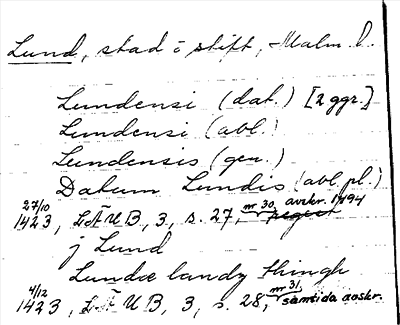 Lund, stad i stift, Malm. l.
Lundensi (dat.) [2 ggr.]
Lundensi (abl.)
Lundensis (gen.)
Datum Lundis (abl. pl.)
27/10 1423, LÄUB, 3, s. 27, nr 30, avskr. 1494
j Lund
Lundæ landz thingh
4/12 1423, LÄUB, 3, s. 28, nr 31, samtida avskr.